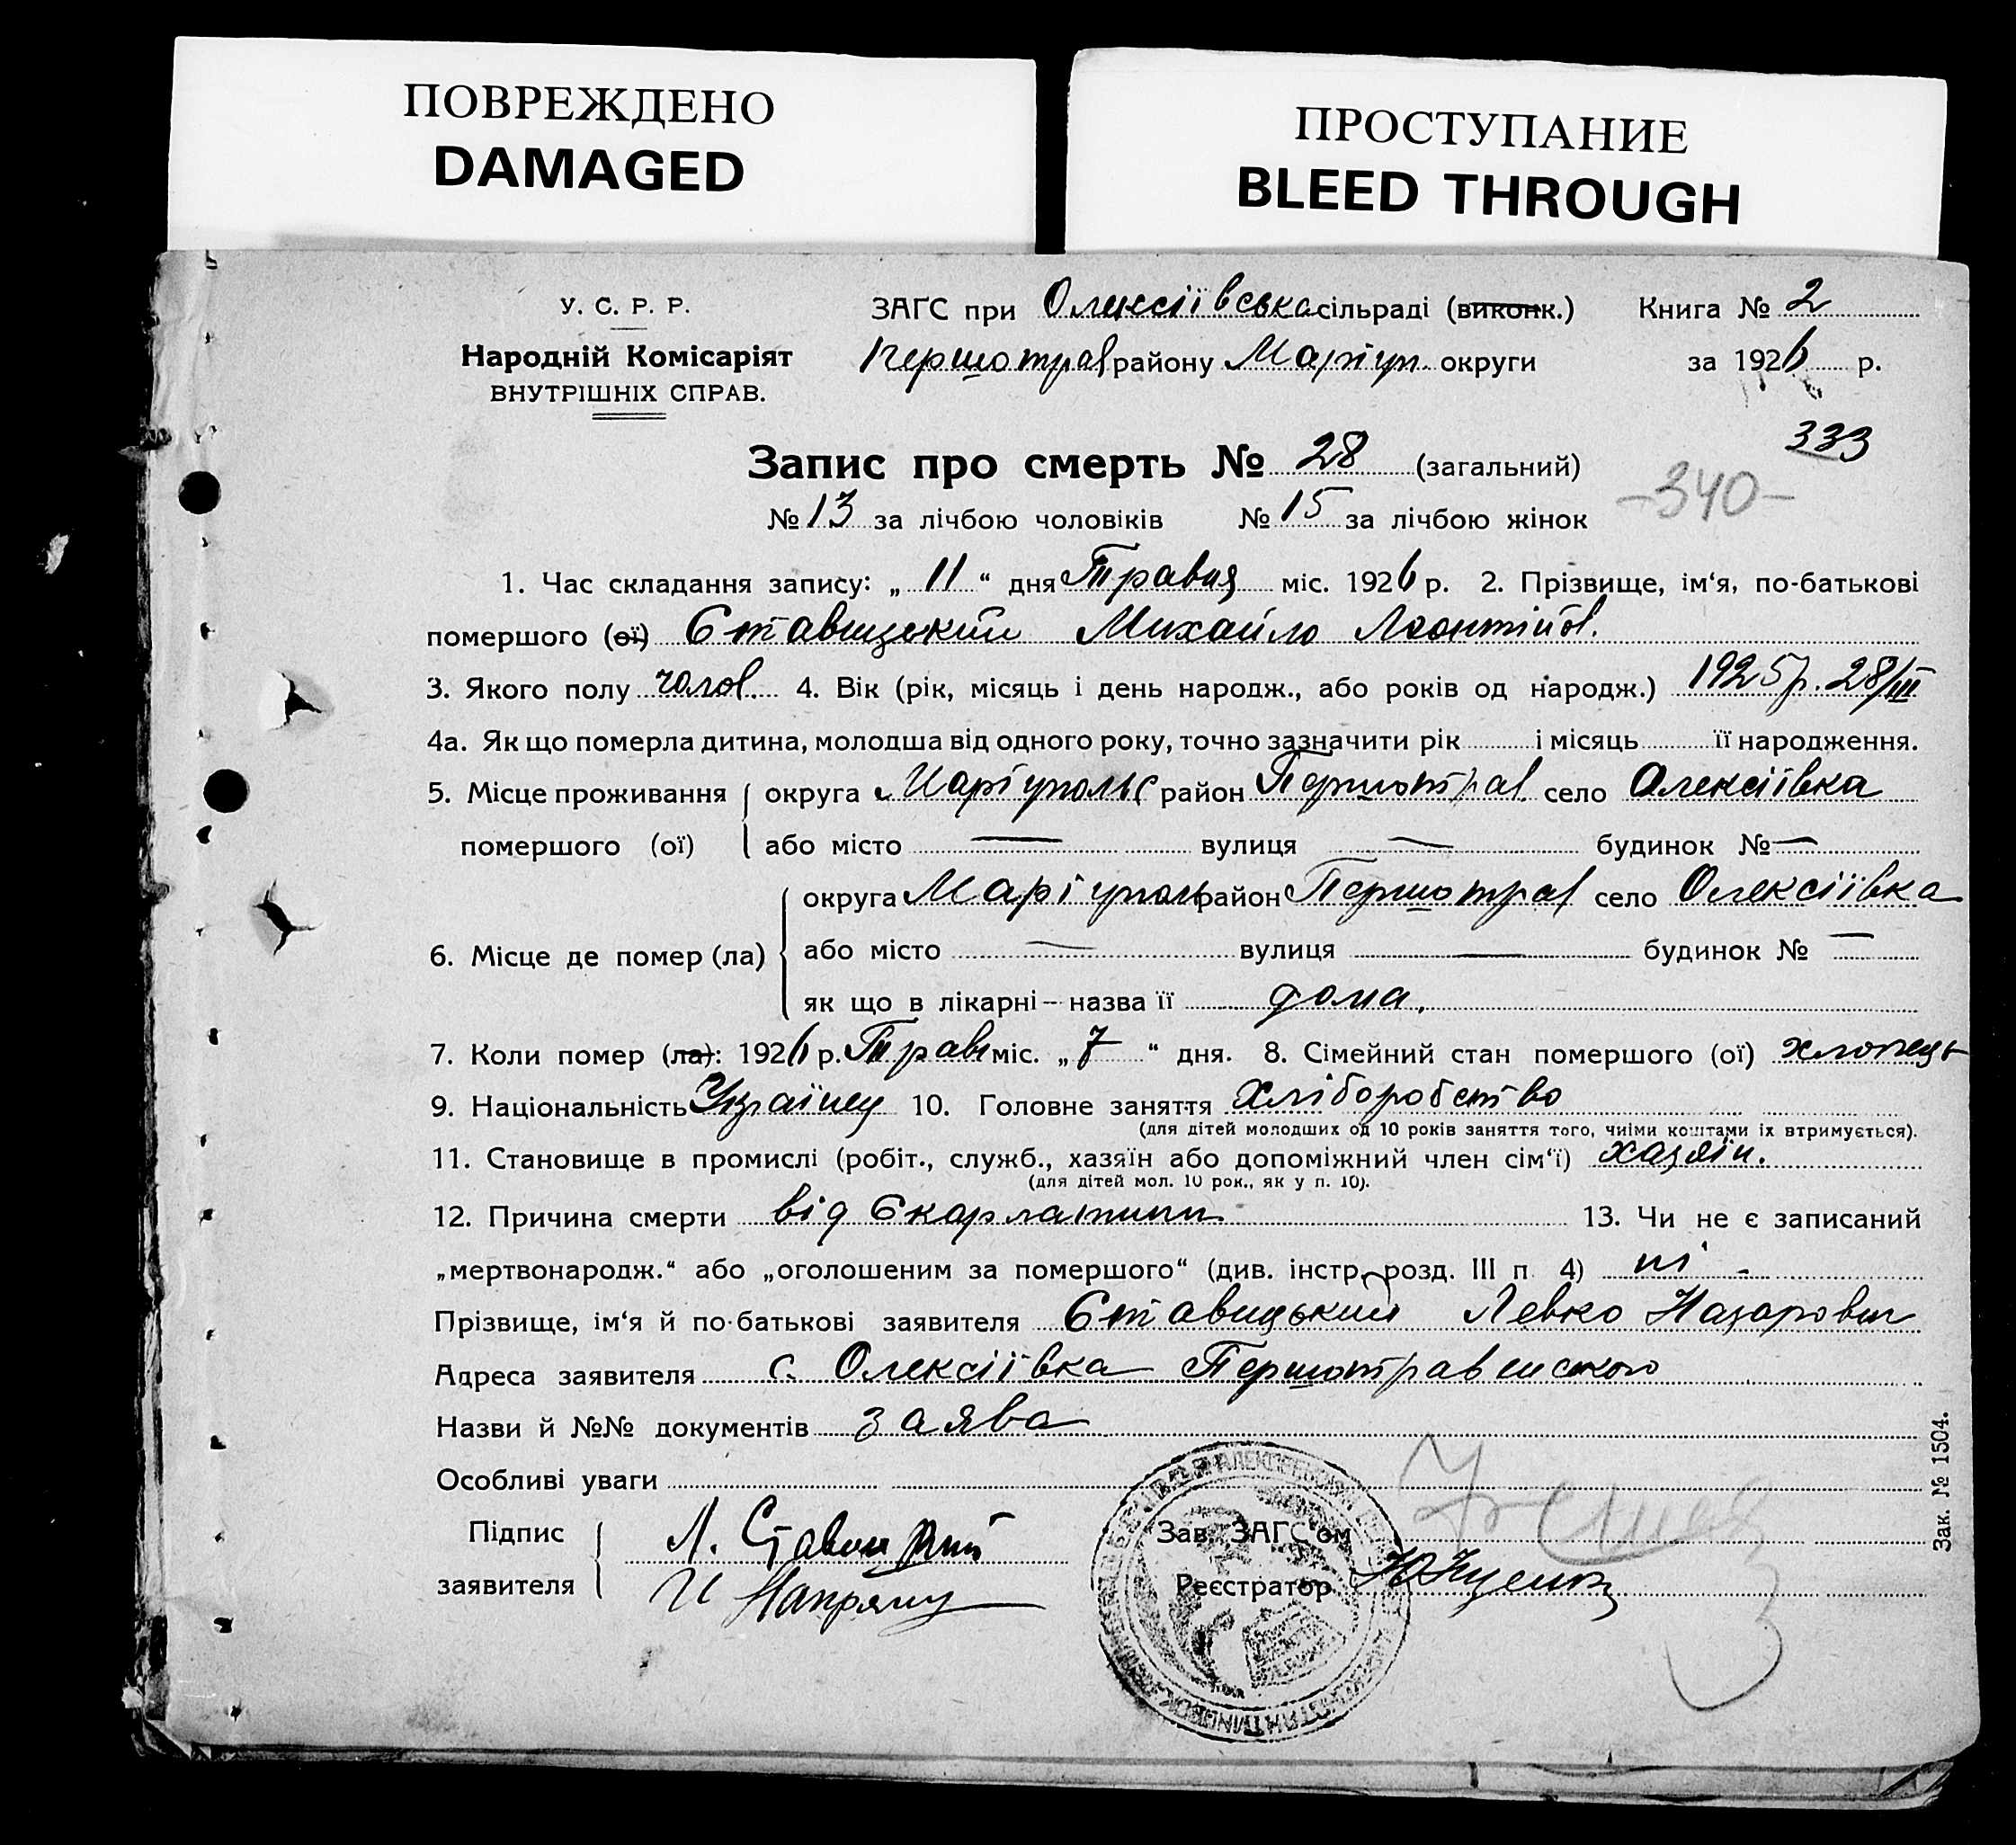 ПОВРЕЖДЕНО
DAMAGED
ПРОСТУПАНИЕ
BLEED THROUGH
У. С. Р. Р.
Народній Комісаріят
ВНУТРІШНІХ СПРАВ.
ЗАҐС при Олексіївська сільраді (виконк.)
Першотрав району Маріуп. округи
Книга № 2
за 1926 р.
333
Запис про смерть № 28 (загальний)
-340-
№ 13 за лічбою чоловіків № 15 за лічбою жінок
1. Час складання запису: „ 11 “ дня Травня міс. 1926 р. 2. Прізвище, ім‘я, по-батькові
помершого (ої) Ставицький Михайло Леонтійов.
3. Якого полу чолов. 4. Вік (рік, місяць і день народж., або років од народж.) 1925 р. 28/III
4а. Як що померла дитина, молодша від одного року, точно зазначити рік і місяць її народження.
5. Місце проживання помершого (ої) округа Маріупольс район Першотрав. село Олексіївка
або місто — вулиця — будинок № —
6. Місце де помер (ла) округа Маріуполь район Першотрав село Олексіївка
або місто — вулиця — будинок № —
як що в лікарні — назва її дома.
7. Коли помер (ла): 1926 р. Травн міс. „ 7 “ дня. 8. Сімейний стан помершого (ої) хлопець
9. Національність Українец 10. Головне заняття Хліборобство
(для дітей молодших од 10 років заняття того, чиїми коштами їх втримується).
11. Становище в промислі (робіт., служб., хазяїн або допоміжний член сім‘ї) хазяїн.
(для дітей мол. 10 рок., як у п. 10).
12. Причина смерти від Скарлатини 13. Чи не є записаний
„мертвонародж.“ або „оголошеним за помершого“ (див. інстр. розд. III п 4) ні -
Прізвище, ім‘я й по-батькові заявителя Ставицький Левко Назарович
Адреса заявителя с. Олексіївка Першотравенського
Назви й №№ документів заява
Особливі уваги
Підпис заявителя Л. Ставицький
Зав. ЗАГС‘ом
Реєстратор
Зак. № 1504.